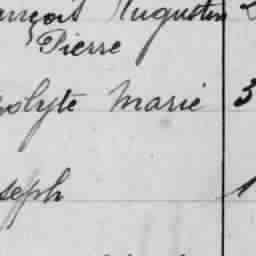 ançois Augustin 2
Pierre
polyte Marie 3
seph 1